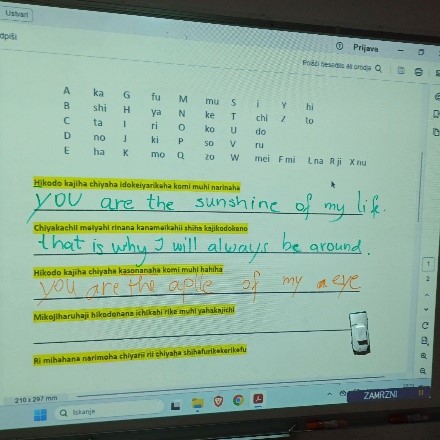 Ustvari
Prijava
dpiši
Poišči besedilo ali orodja
A ka G fu M mu S i Y hi
B shi H ya N ke T chi Z to
C ta I ri O ko U do
D no J ki P so V ru
E ha K mo Q zo W mei F mi L na R ji X nu
Hikodo kajiha chiyaha idokeiyarikeha komi muhi narinaha
you are the sunshine of my life.
Chiyakachii meiyahi rinana kanameikahii shiha kajikodokeno
that is why I will always be around.
Hikodo kajiha chiyaha kasonanaha komi muhi hahiha
you are the aplle of my eye
Mikojiharuhaji hikodohana ichikahi rike muhi yahakajichi
Ri mihahana narimoha chiyarii rii chiyaha shihafurikekerikefu
1
2
210 x 297 mm
Iskanje
ZAMRZNI